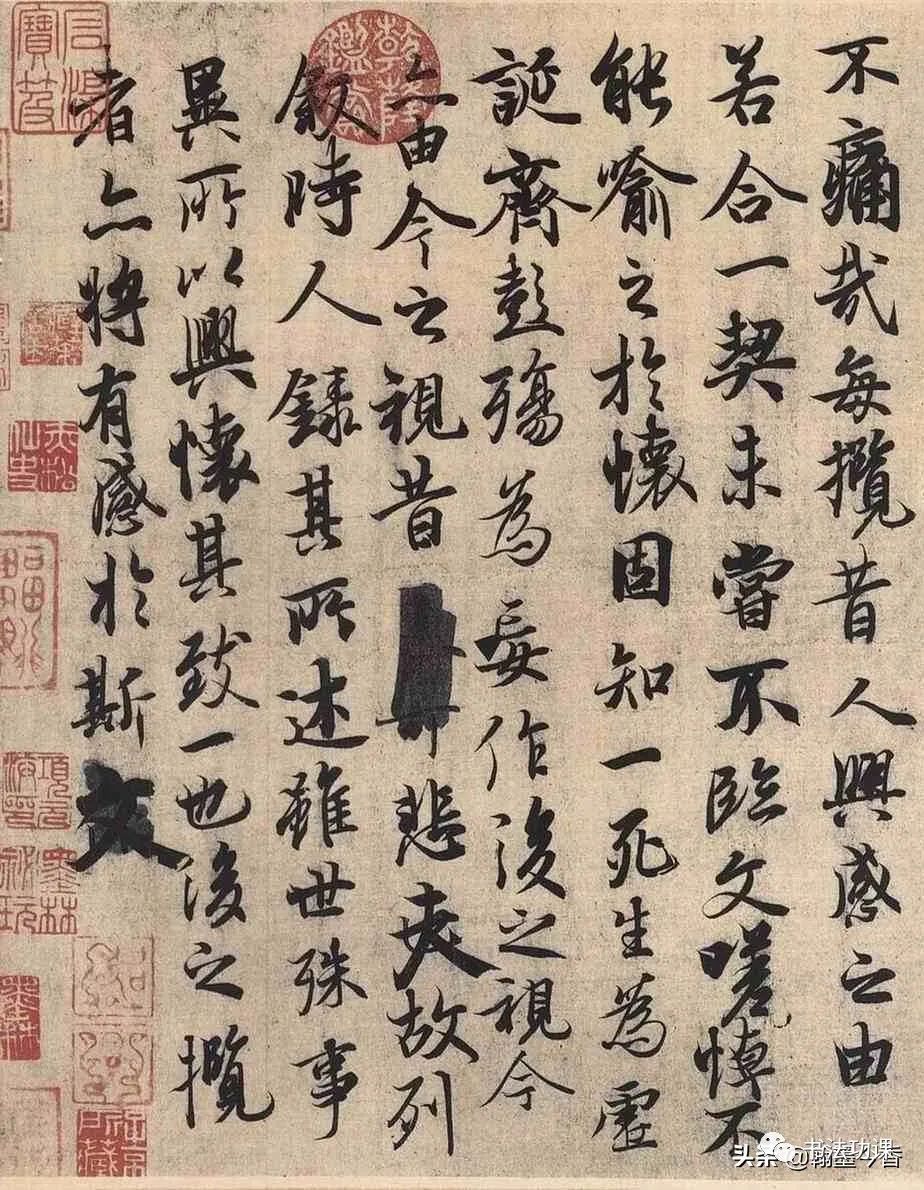 不痛哉每攬昔人興感之由
若合一契未嘗不臨文嗟悼不
能喻之於懷固知一死生為虛
誕齊彭殤為妄作後之視今
亦由今之視昔悲夫故列
叙時人錄其所述雖世殊事
異所以興懷其致一也後之攬
者亦將有感於斯文
头条@翰墨今香
书法功课